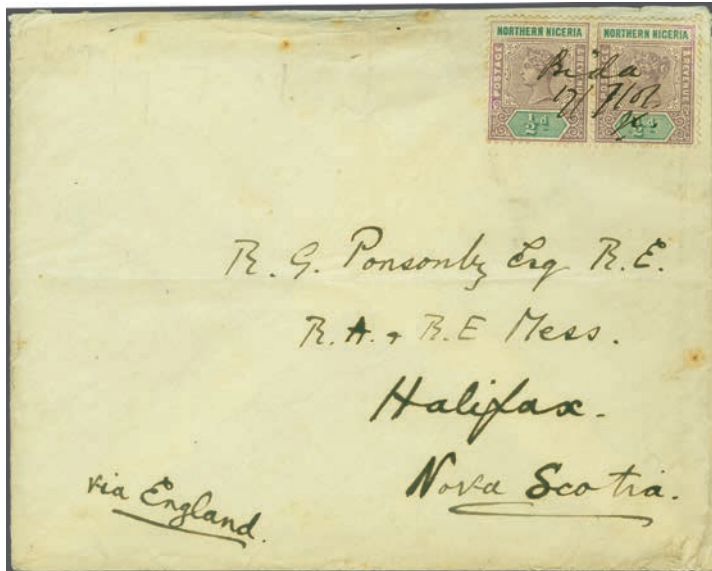 NORTHERN NIGERIA NORTHERN NIGERIA
POSTAGE REVENUE
Bida
17/7/01
½d ½d
R. G. Ponsonby Esq R.E.
R.A. + R.E Mess.
Halifax.
Nova Scotia.
via England.